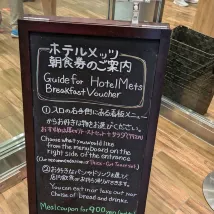 ホテルメッツ
朝食券のご案内
Guide for HotelMets
Breakfast Voucher
①入口の右手側にある看板メニュー
からお好きな物をお選びください。
Choose what you would like
from the menu board on the
right side of the entrance
②お好きなパンやドリンクを選び、
You can eat in or take out our
choice of bread and drinks.
Meal coupon for 900yen